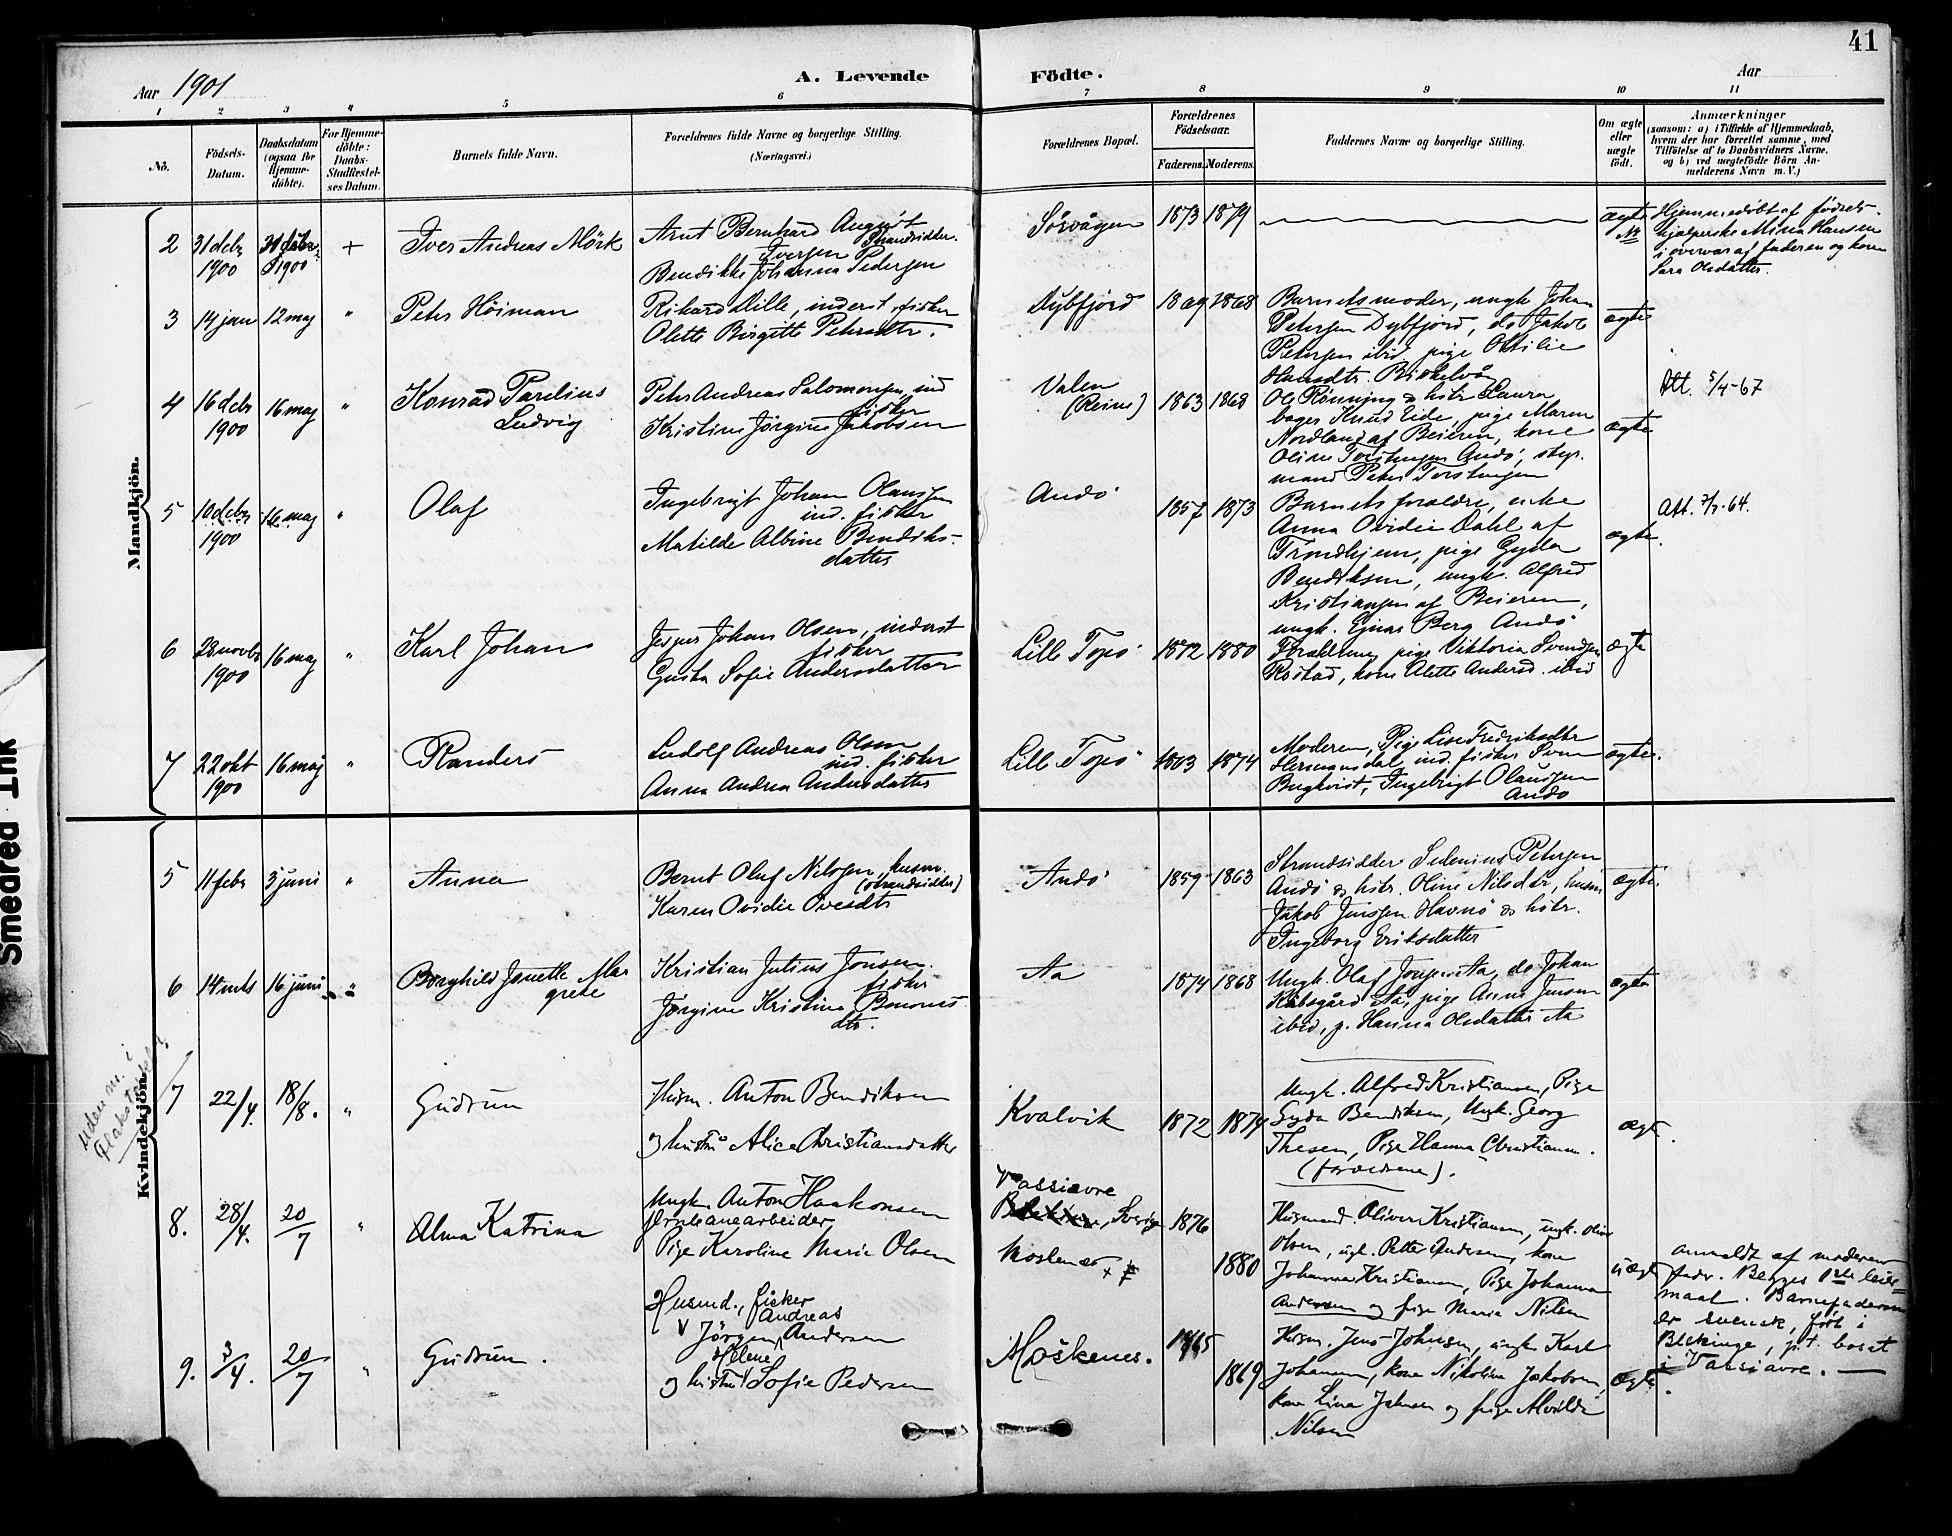 41
Aar 1901
A. Levende
Födte.
Aar
1 2 3 4 5 6 7 8 9 10 11
No.
Födsels-
Datum.
Daabsdatum
(ogsaa for
Hjemme-
döbte).
For Hjemme-
döbte:
Daabs-
Stadfæstel-
ses Datum.
Barnets fulde Navn.
Forældrenes fulde Navne og borgerlige Stilling.
(Næringsvei.)
Forældrenes Bopæl.
Forældrenes
Födselsaar.
Faderens. Moderens.
Faddernes Navne og borgerlige Stilling.
Om ægte
eller
uægte
födt.
Anmærkninger
(saasom: a) i Tilfælde af Hjemmedaab,
hvem der har forrettet samme, med
Tilföielse af to Daabsvidners Navne,
og b) ved uegtefödte Börn An-
melderens Navn m. V.)
Mandkjön.
2
31 debr
1900
31 debr
1900
+
Iver Andreas Mörk
Arnt Bernhard August
Strandsidder.
Iversen
Bendikke Johanna Pedersen
Sörvågen
1873 1879
ægte
Hjemmedöbt af födsels-
hjælperske Mina Hansen
i overvær af faderen og kone
Sara Olsdatter.
3
14 jan
12 maj
"
Peter Höiman
Rikard Lille, inderst, fisker
Olette Birgitte Petersdtr.
Dybfjörd
1869 1868
Barnets moder, ungk. Johan
Petersen Dybfjord, do Jakob
Petersen ibid. pige Ottilie
Hansdtr.
ægte
4
16 debr
1900
16 maj
"
Konrad Parelius
Ludvig
Peter Andreas Salomonsen, ind
fisker
Kristine Jörgine Jakobsen
Valen
(Reine)
1863 1868
Ole Rönning & hstr Laura
bager Knud Eide, pige Maren
Nordland af Beieren, kone
Oline Torstensen Andö, styr.
mand Peter Torstensen
ægte
Att. 5/4-67
5
10 debr
1900
16 maj
"
Olaf
Ingebrigt Johan Olaussen
ind. fisker
Matilde Albine Bendiks-
datter
Andö
1857 1873
Barnets forældre, enke
Anna Ovidie Dahl af
Trondhjem, pige Gyda
Bendiksen, ungk. Alfred
Kristiansen af Beieren,
ungk. Ejnar Berg Andö
ægte.
Att. 7/7-64.
6
28 novbr
1900
16 maj
"
Karl Johan
Jesper Johan Olsen, inderst
fisker
Gusta Sofie Andersdatter
Lille Topö
1872 1880
Forældrene, pige Viktoria Svendsen
Rostad, kone Olette Andersd. ibid
ægte
7
22 okt
1900
16 maj
"
Randers
Ludolf Andreas Olsen
ind. fisker
Anna Andrea Andersdatter
Lille Topö
1874
Moderen, Pige Lise Fredriksdtr
Hermansdal, ind. fisker Sven
Bugkvist, Ingebrigt Olaussen
Andö
ægte.
Kvindekjön.
5
11 febr
3 juni
"
Anna
Bernt Oluf Nilssen, husm.
(strandsidder)
Karen Ovidie Ovesdtr
Andö
1859 1863
Strandsidder Selenius Petersen
Andö & hstr. Oline Nilsdtr, husm
Jakob Jenssen Havnö & hstr.
Ingeborg Eriksdatter
ægte.
6
14 mts
16 juni
"
Borghild Janette Mar
grete
Kristian Julius Jonsen.
fisker
Jörgine Kristine Benones
dtr.
Aa
1874 1868
Ungk. Olaf Jonsen Aa, do Johan
Aa, pige Anna Jensen
ibid, p. Hanna Olsdatter Aa
ægte
Uden nr. i
7
22/4.
18/8.
"
Gudrun
Husm. Anton Bendiksen
og hustru Alice Christiansdatter
Kvalvik
1872 1874
Ungk. Alfred Kristiansen, Pige
Gyda Bendiksen, Ungk. Georg
Thesen, Pige Hanna Christiansen.
(forældrene).
ægt.
8.
28/4.
20/7
"
Alma Katrina
Ungk. Anton Haakonsen
Jernbanearbeider
Pige Karoline Marie Olsen
Vassiavre
Sverige
Moskenes
1876
1880
Husmand. Oliver Kristiansen, ungk. Oliver
Olsen, ugk. Petter Andersen, kone
Johanna Kristiansen, Pige Johanna
Andersen og pige Marie Nilsen
uægt
Anmeldt af moderens
fader. Begges 1ste leier-
maal. Barnefaderen
er svensk, födt i
Blekinge, p.t. bosat
i Vassiavre.
9.
3/4.
20/7
"
Gudrun.
Husmd., fisker
Andreas
Jörgen Andersen
Helene
og hustru Sofie Pedersen
Moskenes.
1865
1869
Husm. Jens Johnsen, ungk. Karl
Johansen, kone Nikoline Jakobsen,
kone Lina Johnsen og pige Alvilde
Nilsen
ægt.
Smedred Ink